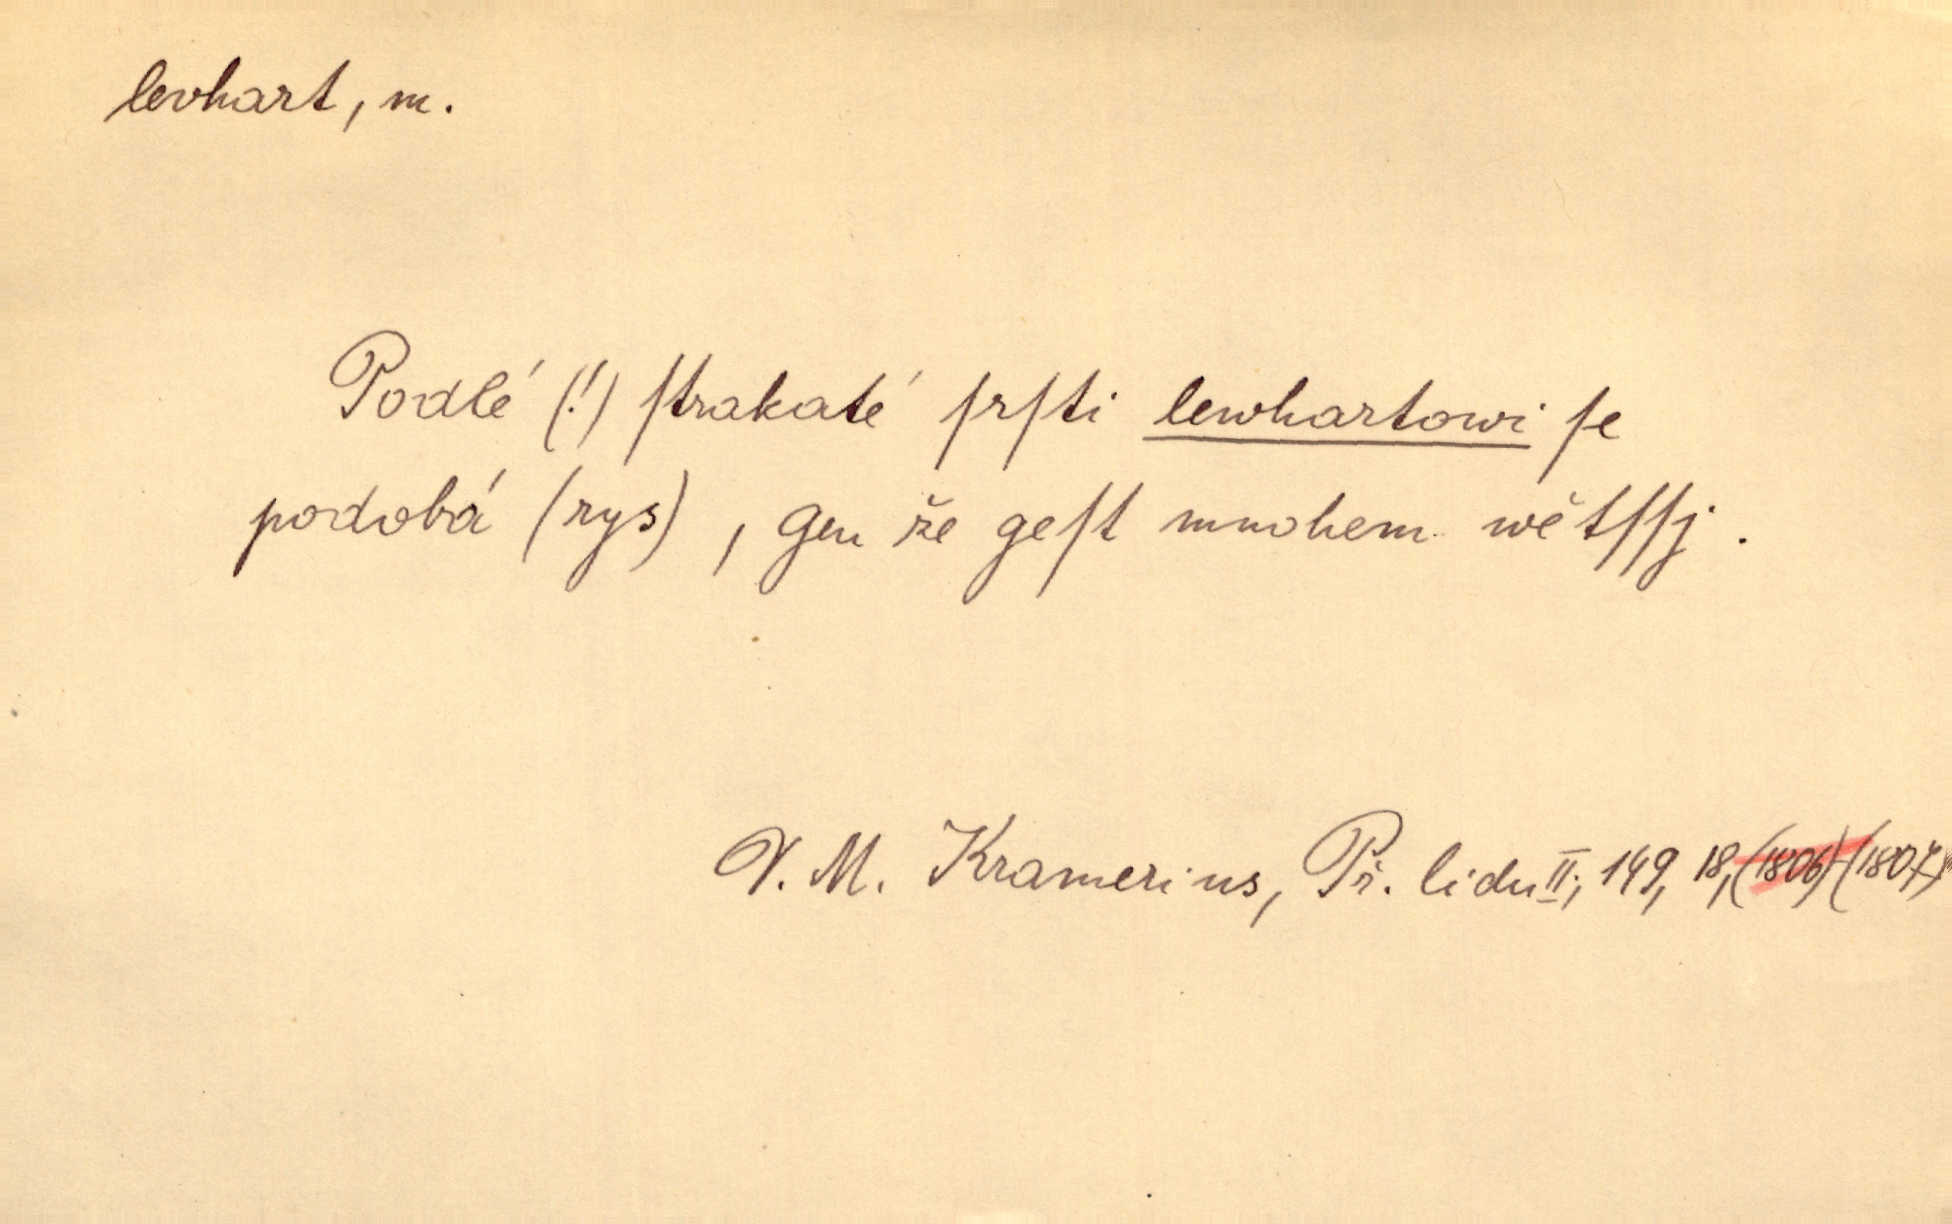 levhart, m.
Podlé (!) ſtrakaté ſrſti lewhartowi ſe
podobá (rys), gen že geſt mnohem wětſſj.
V. M. Kramerius, Př. lidu II, 149, 18, (1806) (1807)